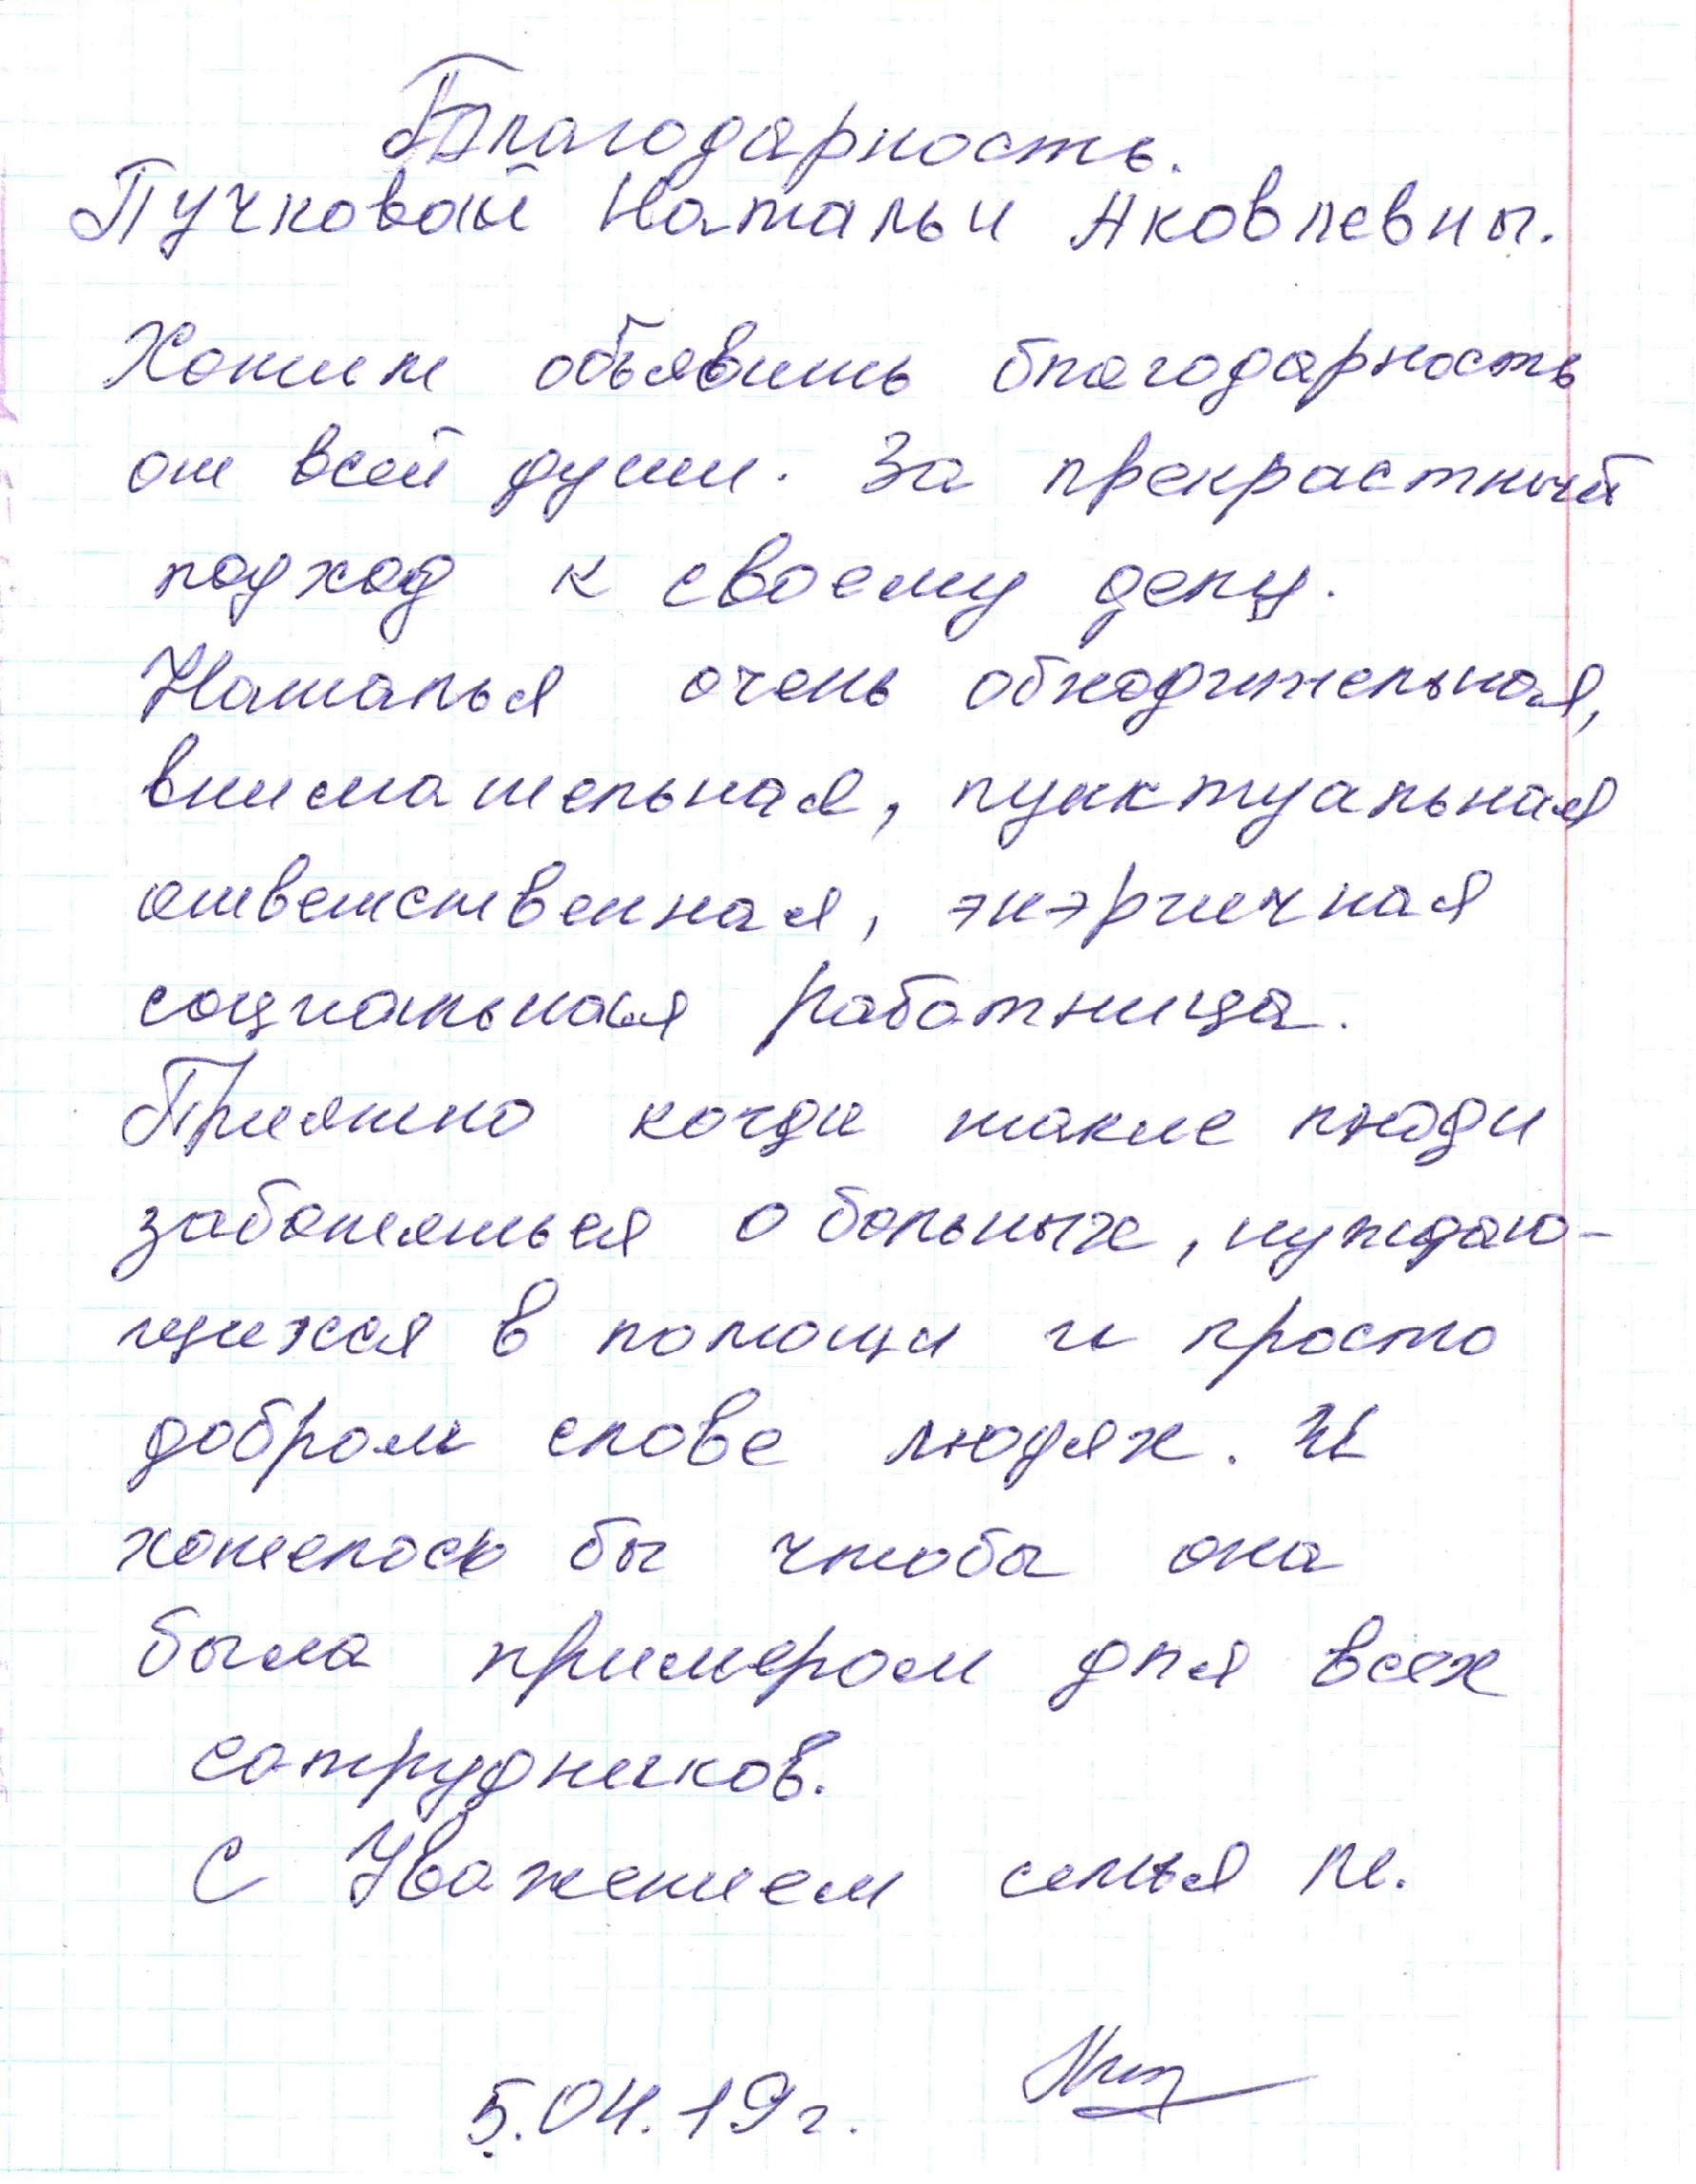 Благодарность.
Пучковай Натальи Яковлевны.
Хотим объявить благодарность
от всей души. За прекрастный
подход к своему делу.
Наталья очень обходительная,
внимательная, пунктуальная
ответственная, энэргичная
социальная работница.
Приятно когда такие люди
заботяться о больных, нуждаю-
щихся в помощи и просто
добром слове людях. И
хотелось бы чтобы она
была примером для всех
сотрудников.
С Уважением семья М.
5.04.19г.